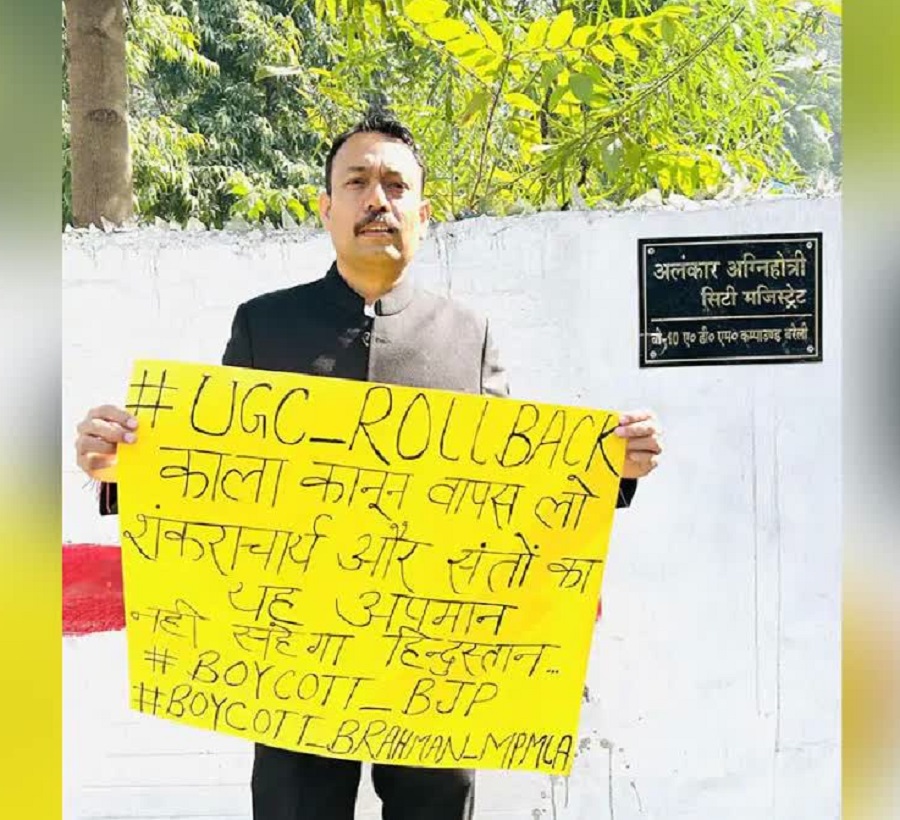 अलंकार अग्निहोत्री
सिटी मजिस्ट्रेट
ए० डी० एम० कम्पाउण्ड बरेली
#UGC_ROLLBACK
काला कानून वापस लो
शंकराचार्य और संतों का
यह अपमान
नही सहेगा हिन्दुस्तान...
#BOYCOTT_BJP
#BOYCOTT_BRAHMAN_MPMLA